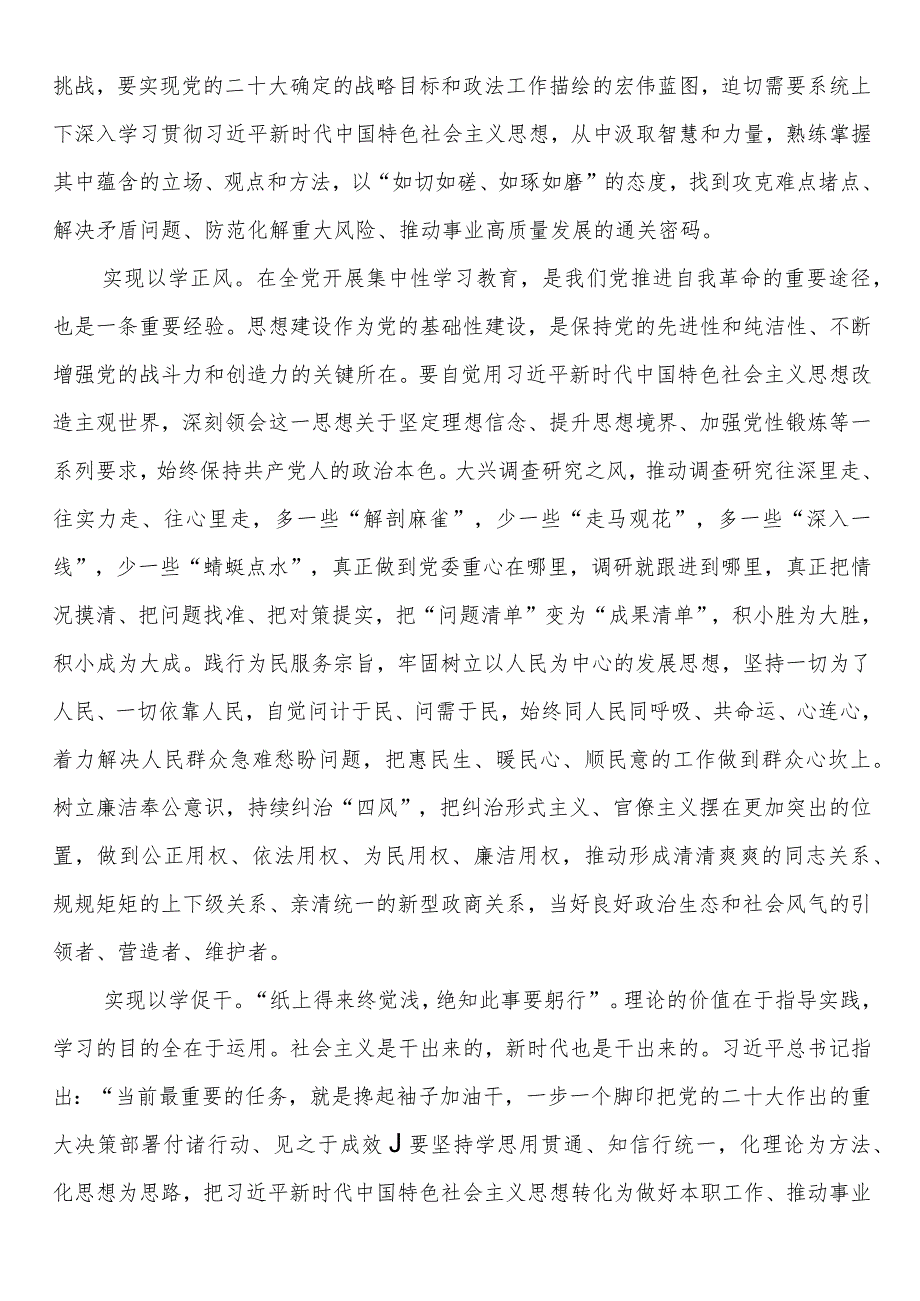 挑战，要实现党的二十大确定的战略目标和政法工作描绘的宏伟蓝图，迫切需要系统上
下深入学习贯彻习近平新时代中国特色社会主义思想，从中汲取智慧和力量，熟练掌握
其中蕴含的立场、观点和方法，以“如切如磋、如琢如磨”的态度，找到攻克难点堵点、
解决矛盾问题、防范化解重大风险、推动事业高质量发展的通关密码。
实现以学正风。在全党开展集中性学习教育，是我们党推进自我革命的重要途径，
也是一条重要经验。思想建设作为党的基础性建设，是保持党的先进性和纯洁性、不断
增强党的战斗力和创造力的关键所在。要自觉用习近平新时代中国特色社会主义思想改
造主观世界，深刻领会这一思想关于坚定理想信念、提升思想境界、加强党性锻炼等一
系列要求，始终保持共产党人的政治本色。大兴调查研究之风，推动调查研究往深里走、
往实力走、往心里走，多一些“解剖麻雀”，少一些“走马观花”，多一些“深入一
线”，少一些“蜻蜓点水”，真正做到党委重心在哪里，调研就跟进到哪里，真正把情
况摸清、把问题找准、把对策提实，把“问题清单”变为“成果清单”，积小胜为大胜，
积小成为大成。践行为民服务宗旨，牢固树立以人民为中心的发展思想，坚持一切为了
人民、一切依靠人民，自觉问计于民、问需于民，始终同人民同呼吸、共命运、心连心，
着力解决人民群众急难愁盼问题，把惠民生、暖民心、顺民意的工作做到群众心坎上。
树立廉洁奉公意识，持续纠治“四风”，把纠治形式主义、官僚主义摆在更加突出的位
置，做到公正用权、依法用权、为民用权、廉洁用权，推动形成清清爽爽的同志关系、
规规矩矩的上下级关系、亲清统一的新型政商关系，当好良好政治生态和社会风气的引
领者、营造者、维护者。
实现以学促干。“纸上得来终觉浅，绝知此事要躬行”。理论的价值在于指导实践，
学习的目的全在于运用。社会主义是干出来的，新时代也是干出来的。习近平总书记指
出：“当前最重要的任务，就是搀起袖子加油干，一步一个脚印把党的二十大作出的重
大决策部署付诸行动、见之于成效J要坚持学思用贯通、知信行统一，化理论为方法、
化思想为思路，把习近平新时代中国特色社会主义思想转化为做好本职工作、推动事业